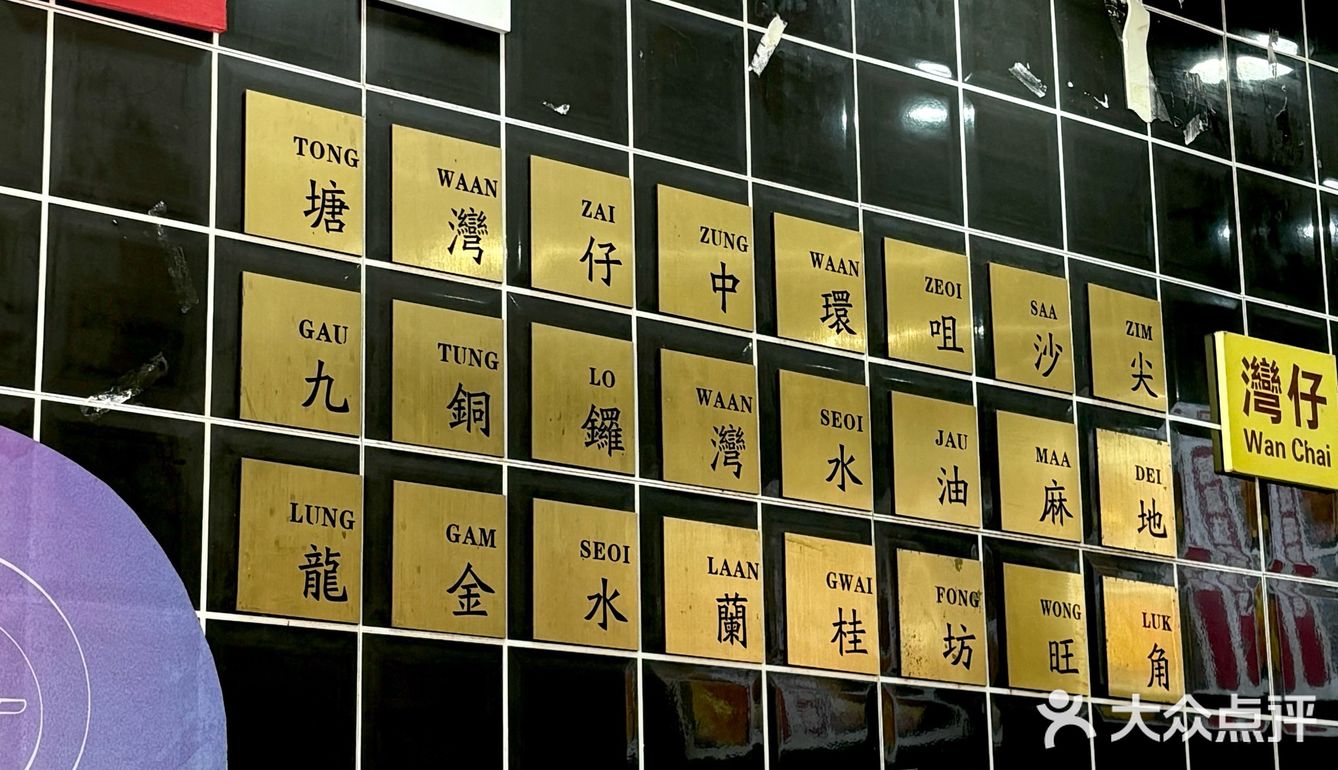 TONG WAAN ZAI ZUNG WAAN ZEOI SAA ZIM
塘 灣 仔 中 環 咀 沙 尖
GAU TUNG LO WAAN SEOI JAU MAA DEI
九 銅 鑼 灣 水 油 麻 地
LUNG GAM SEOI LAAN GWAI FONG WONG LUK
龍 金 水 蘭 桂 坊 旺 角
灣仔
Wan Chai
大众点评